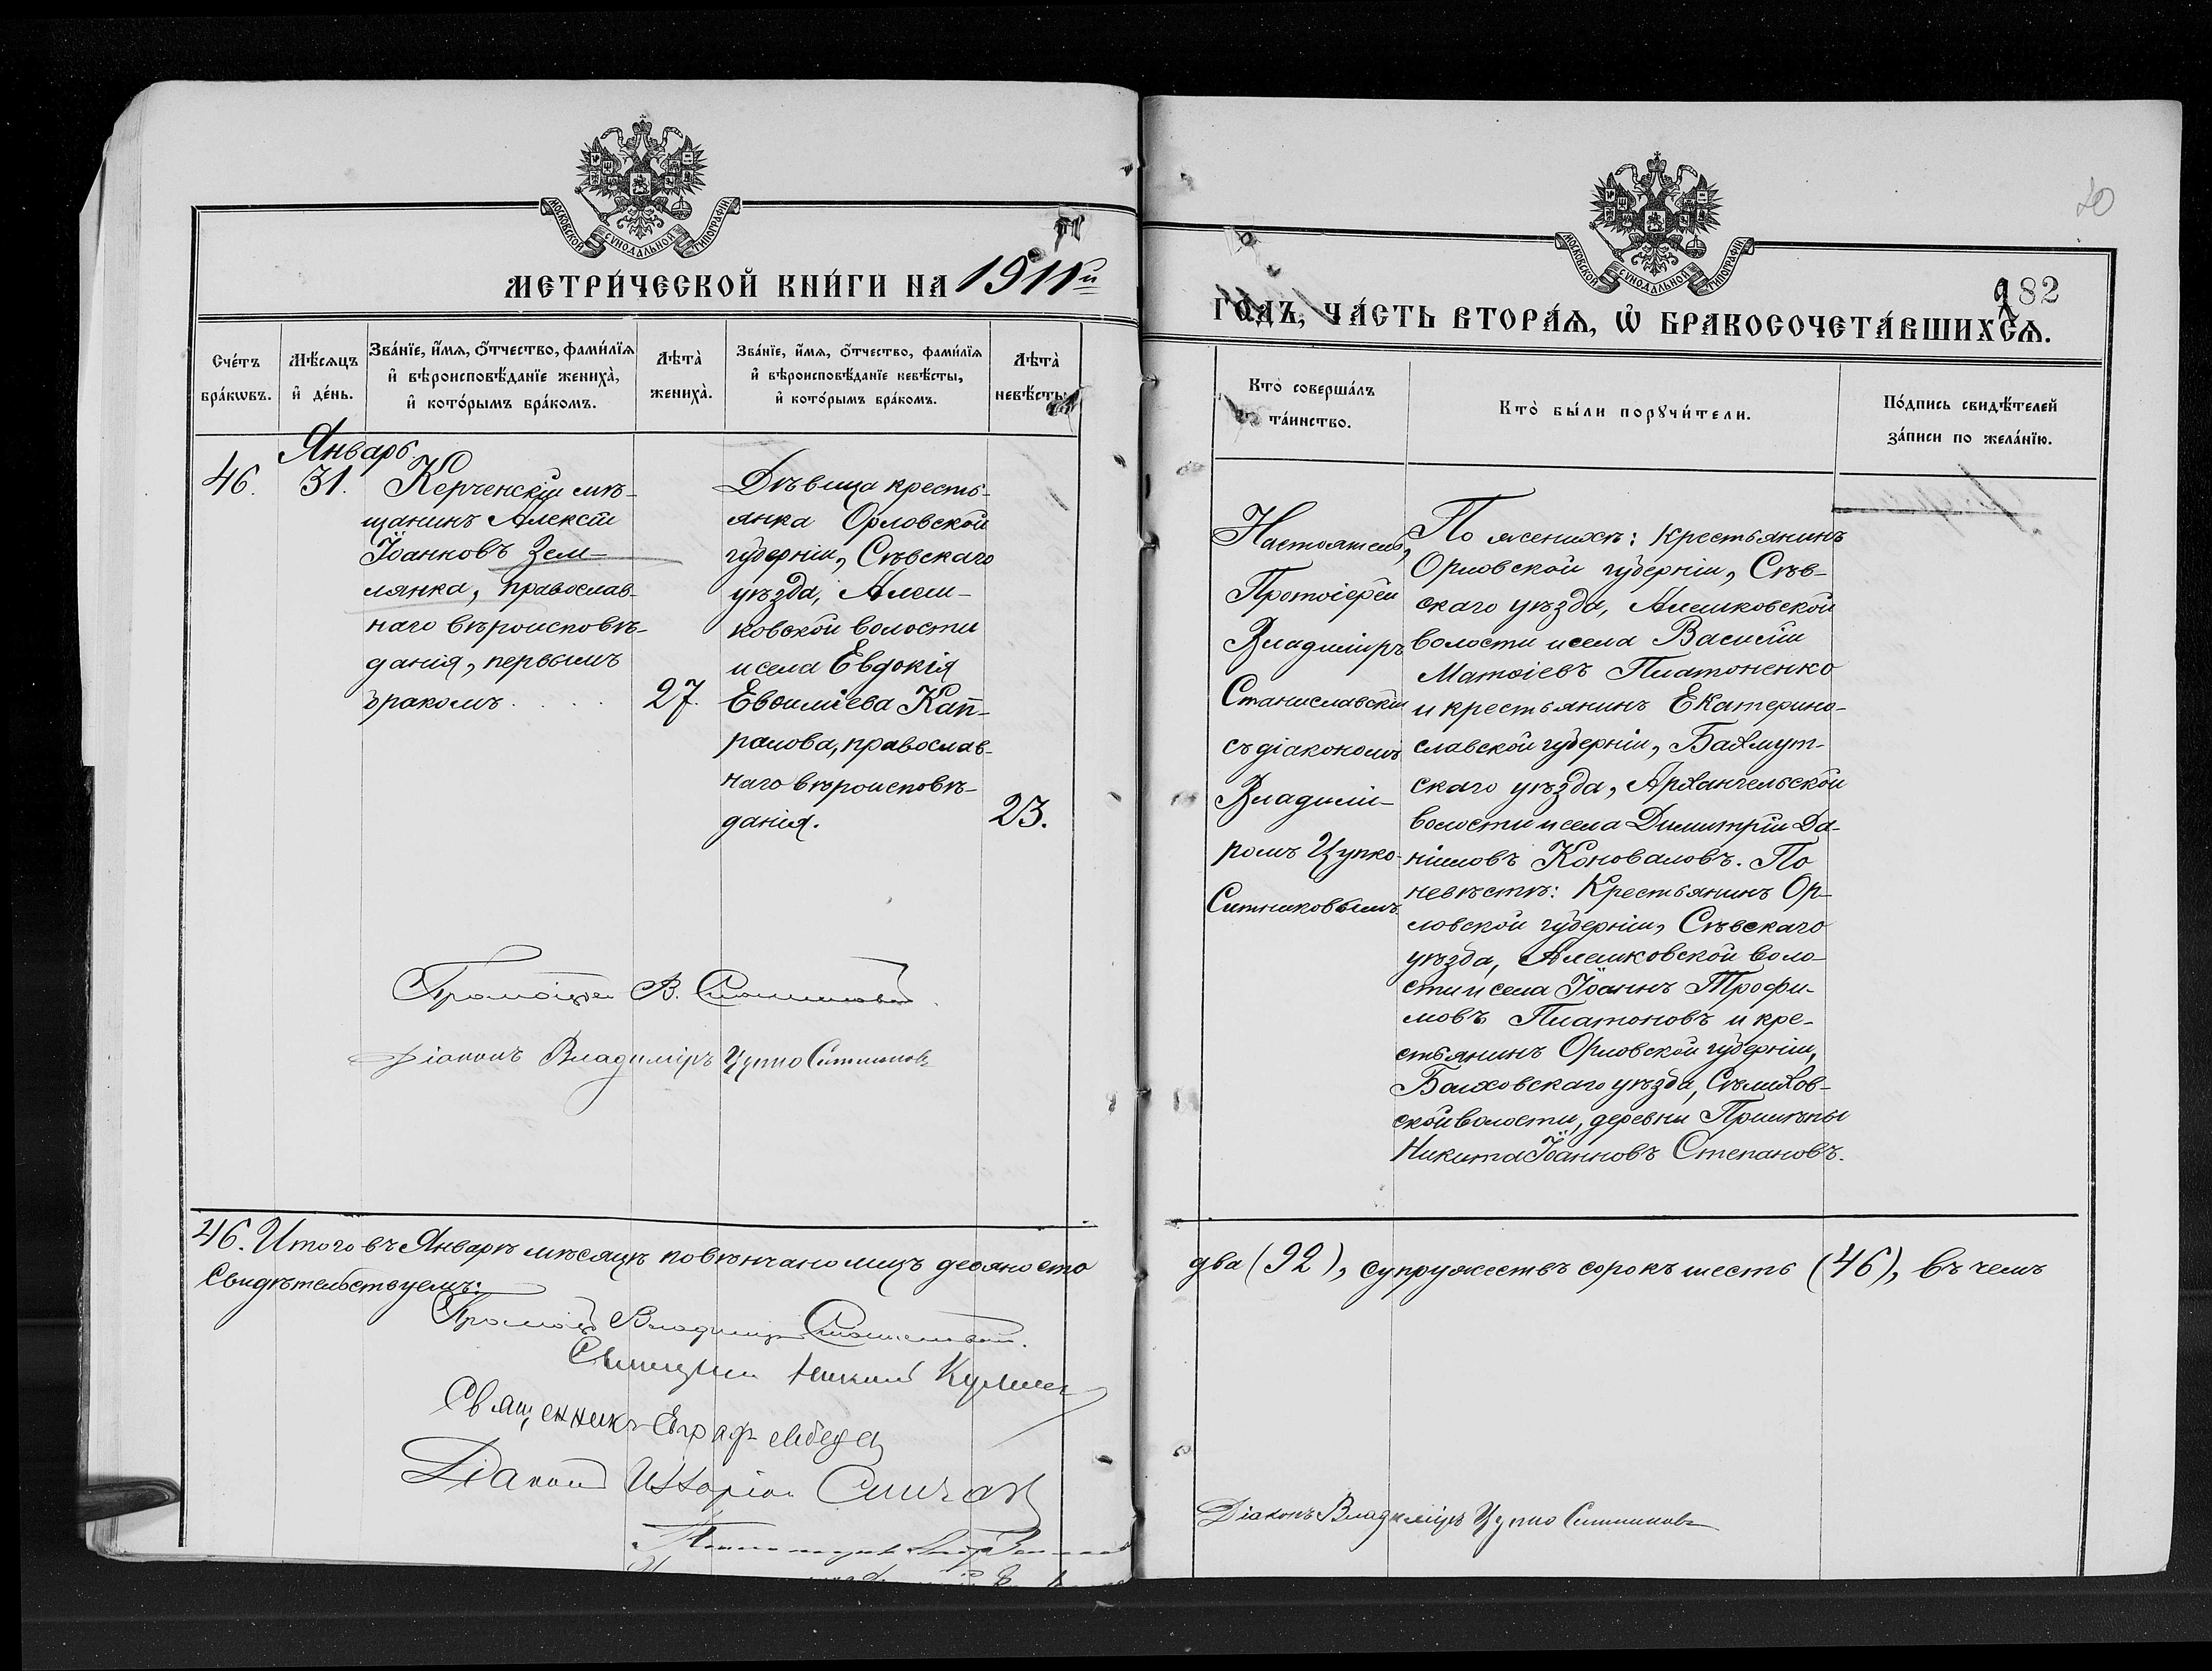 МОСКОВСКОЙ СѴНОДАЛЬНОЙ ТИПОГРАФІИ
МЕТРИ́ЧЕСКОЙ КНИ́ГИ НА 1911й
Сче́тъ бра́кѡвъ.
Мѣ́сѧцъ и҆ де́нь.
Зва́нїе, и҆́мѧ, ѻ҆́тчество, фами́лїѧ
и҆ вѣроисповѣ́данїе жениха̀,
и҆ кото́рымъ бра́комъ.
Лѣта̀ жениха̀.
Зва́нїе, и҆́мѧ, ѻ҆́тчество, фами́лїѧ
и҆ вѣроисповѣ́данїе невѣ́сты,
и҆ кото́рымъ бра́комъ.
Лѣта̀ невѣ́сты.
Январь.
46.
31.
Керченскій мѣ-
щанинъ Алексѣй
Іоанновъ Зем-
лянка, православ-
наго вѣроисповѣ-
данія, первымъ
бракомъ.
27.
Дѣвица кресть-
янка Орловской
губерніи, Сѣвскаго
уѣзда, Алеш-
ковской волости
и села Евдокія
Евѳиміева Кап-
ралова, православ-
наго вѣроисповѣ-
данія.
23.
Протоіерей В. Станиславскій.
Діаконъ Владиміръ Цупко Ситниковъ
46. Итого въ Январѣ мѣсяцѣ повѣнчано лицъ девяносто
Свидѣтельствуемъ:
Протоіер Владиміръ Станиславскій.
Священникъ
Священникъ Евграф Лебеде
Діаконъ
МОСКОВСКОЙ СѴНОДАЛЬНОЙ ТИПОГРАФІИ
20
182
ГО́ДЪ, ЧА́СТЬ ВТОРА́Ѧ, Ѡ҆ БРАКОСОЧЕТА́ВШИХСѦ.
Кто̀ соверша́лъ та́инство.
Кто̀ бы́ли порꙋчи́тели.
По́дпись свидѣ́телей
за́писи по жела́нїю.
Настоятель,
Протоіерей
Владиміръ
Станиславскій
съ діакономъ
Владимі-
ромъ Цупко-
Ситниковымъ.
По женихѣ: крестьянинъ
Орловской губерніи, Сѣв-
скаго уѣзда, Алешковской
волости и села Василій
Матѳіевъ Платоненко
и крестьянинъ Екатерино-
славской губерніи, Бахмут-
скаго уѣзда, Архангельской
волости и села Димитрій Да-
ніиловъ Коноваловъ. По
невѣстѣ: Крестьянинъ Ор-
ловской губерніи, Сѣвскаго
уѣзда, Алешковской воло-
сти и села Іоаннъ Трофи-
мовъ Платоновъ и кре-
стьянинъ Орловской губерніи,
Болховскаго уѣзда, Сѣмихов-
ской волости, деревни Прилѣпы
Никита Іоанновъ Степановъ.
два (92), супружествъ сорокъ шесть (46), въ чемъ
Діаконъ Владиміръ Цупко Ситниковъ